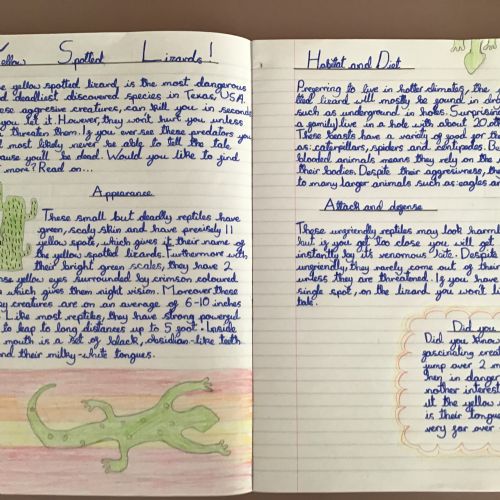 Yellow Spotted Lizards!
The yellow spotted lizard, is the most dangerous
and deadliest discovered species in Texas, USA.
These aggresive creatures, can kill you in seconds
you let it. However, they wont hurt you unless
threaten them. If you ever see these predators you
most likely never be able to tell the tale
because you'll be dead. Would you like to find
more? Read on...
Appearance
These small but deadly reptiles have
green, scaly skin and have preisely 11
yellow spots, which gives it their name of
the yellow spotted lizards. Furthurmore with
their bright green scales, they have 2
yellow eyes surrounded by crimson coloured
which gives them night vision. Moreover these
creatures are on an average of 6-10 inches
Like most reptiles, they have strong powerful
to leap to long distances up to 5 foot. Inside
mouth is a set of black, obsidian-like teeth
and their milky-white tongues.
Habitat and Diet
Preferring to live in hotter climates, the
lizard will mostly be found in
such as underground in holes. Surprising
a family) live in a hole with about 20 other
These beasts have a variety of food for
as: catterpillars, spiders and centipedes. Be
blooded animals means they rely on the
their bodies. Despite their aggresivness, the
to many larger animals such as: eagles
Attack and defense
These unfriendly reptiles may look harml
but if you get too close you will get
instantly by its venomous bite. Despite
unfriendly, they rarely come out of their
unless they are threatened. If you have
single spot, on the lizard you won't
tale.
Did you
Did you know
fascinating crea
jump over 2 m
when in danger
nother interest
is their tongue
very far over